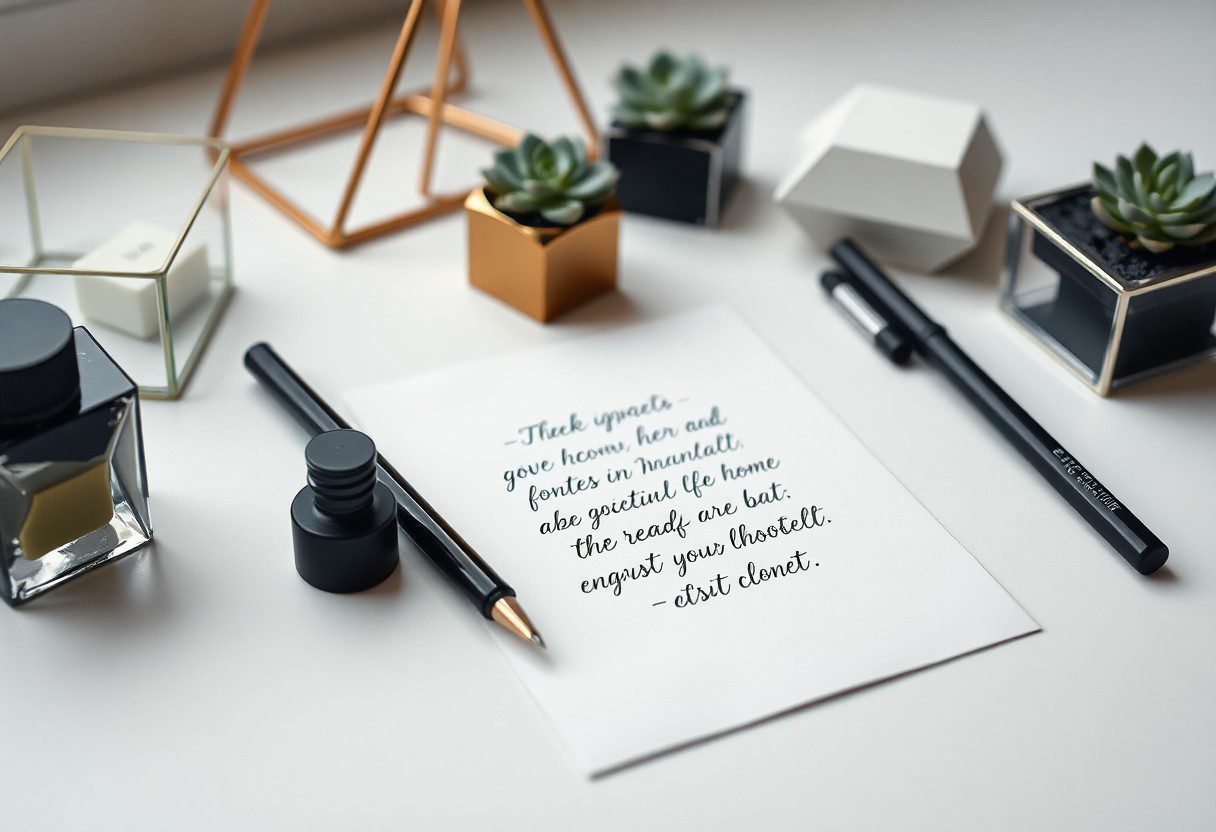 – Theek ignaets –
gove hcowu, her and
fontes in Mranlatt.
abe goictiul lfe home
the readf are bat.
engust your lhootelt.
– etsit clonet.